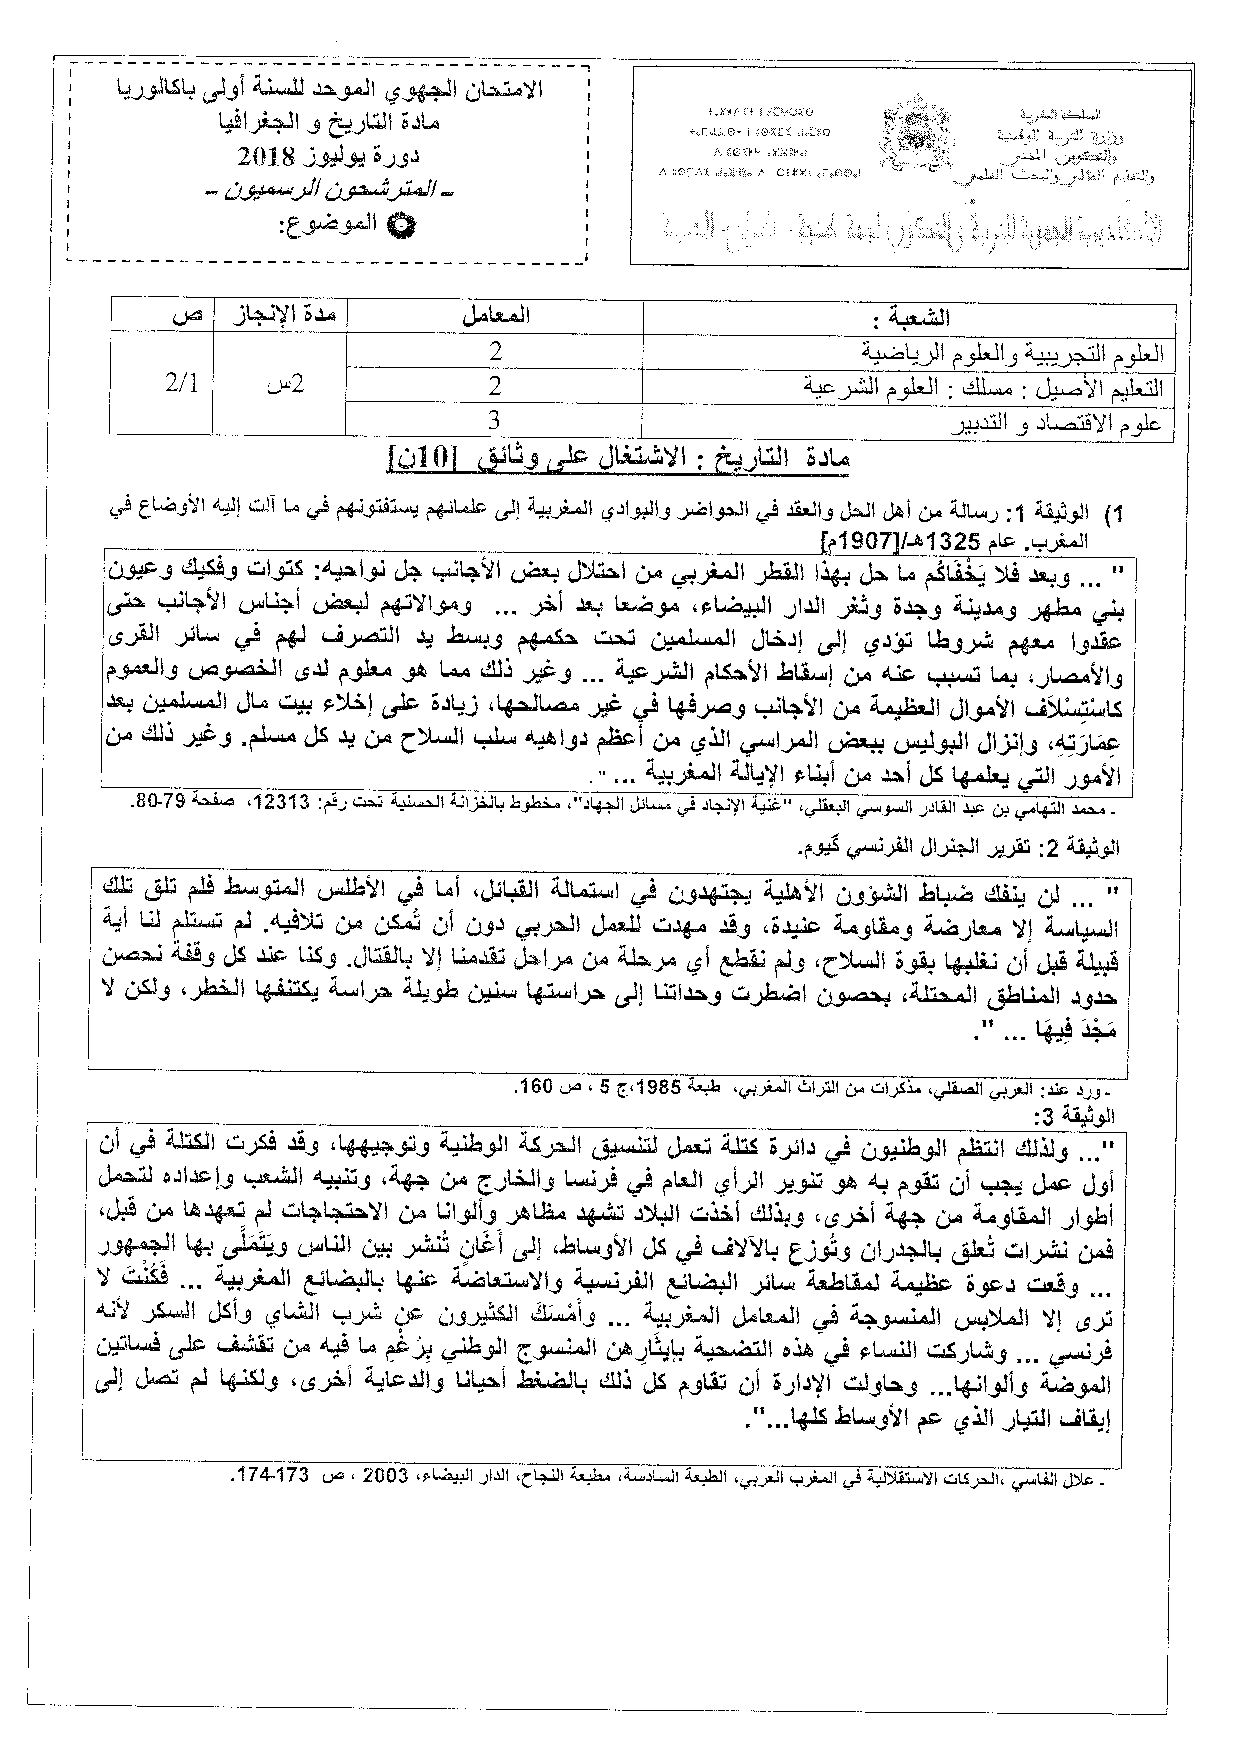 المملكة المغربية
وزارة التربية الوطنية
والتكوين المهني
والتعليم العالي والبحث العلمي
الامتحان الجهوي الموحد للسنة أولى باكالوريا
مادة التاريخ و الجغرافيا
دورة يوليوز 2018
– المترشحون الرسميون –
الموضوع:
الشعبة : المعامل مدة الإنجاز ص
العلوم التجريبية والعلوم الرياضية 2
التعليم الأصيل : مسلك : العلوم الشرعية 2 2س 2/1
علوم الاقتصاد و التدبير 3
مادة التاريخ : الاشتغال على وثائق [10ن]
1) الوثيقة 1: رسالة من أهل الحل والعقد في الحواضر والبوادي المغربية إلى علمائهم يستفتونهم في ما آلت إليه الأوضاع في
المغرب. عام 1325هـ/[1907م]
" ... وبعد فلا يَخْفَاكُم ما حل بهذا القطر المغربي من احتلال بعض الأجانب جل نواحيه: كتوات وفكيك وعيون
بني مطهر ومدينة وجدة وثغر الدار البيضاء، موضعا بعد أخر ... وموالاتهم لبعض أجناس الأجانب حتى
عقدوا معهم شروطا تؤدي إلى إدخال المسلمين تحت حكمهم وبسط يد التصرف لهم في سائر القرى
والأمصار، بما تسبب عنه من إسقاط الأحكام الشرعية ... وغير ذلك مما هو معلوم لدى الخصوص والعموم
كاسْتِسْلَاف الأموال العظيمة من الأجانب وصرفها في غير مصالحها، زيادة على إخلاء بيت مال المسلمين بعد
عِمَارَتِهِ، وإنزال البوليس ببعض المراسي الذي من أعظم دواهيه سلب السلاح من يد كل مسلم. وغير ذلك من
الأمور التي يعلمها كل أحد من أبناء الإيالة المغربية ... ".
- محمد التهامي بن عبد القادر السوسي البعقلي، "غنية الإنجاد في مسائل الجهاد"، مخطوط بالخزانة الحسنية تحت رقم: 12313، صفحة 79-80.
الوثيقة 2: تقرير الجنرال الفرنسي گيوم.
" ... لن ينفك ضباط الشؤون الأهلية يجتهدون في استمالة القبائل، أما في الأطلس المتوسط فلم تلق تلك
السياسة إلا معارضة ومقاومة عنيدة، وقد مهدت للعمل الحربي دون أن تُمكن من تلافيه. لم تستلم لنا أية
قبيلة قبل أن نغلبها بقوة السلاح، ولم نقطع أي مرحلة من مراحل تقدمنا إلا بالقتال. وكنا عند كل وقفة نحصن
حدود المناطق المحتلة، بحصون اضطرت وحداتنا إلى حراستها سنين طويلة حراسة يكتنفها الخطر، ولكن لا
مَجْدَ فِيهَا ... ".
- ورد عند: العربي الصقلي، مذكرات من التراث المغربي، طبعة 1985،ج 5 ، ص 160.
الوثيقة 3:
"... ولذلك انتظم الوطنيون في دائرة كتلة تعمل لتنسيق الحركة الوطنية وتوجيهها، وقد فكرت الكتلة في أن
أول عمل يجب أن تقوم به هو تنوير الرأي العام في فرنسا والخارج من جهة، وتنبيه الشعب وإعداده لتحمل
أطوار المقاومة من جهة أخرى، وبذلك أخذت البلاد تشهد مظاهر وألوانا من الاحتجاجات لم تعهدها من قبل،
فمن نشرات تُعلق بالجدران وتُوزع بالآلاف في كل الأوساط، إلى أَغَانٍ تُنشر بين الناس ويَتَمَلَّى بها الجمهور
... وقعت دعوة عظيمة لمقاطعة سائر البضائع الفرنسية والاستعاضة عنها بالبضائع المغربية ... فَكُنْتَ لا
ترى إلا الملابس المنسوجة في المعامل المغربية ... وأَمْسَك الكثيرون عن شرب الشاي وأكل السكر لأنه
فرنسي ... وشاركت النساء في هذه التضحية بإيثَارِهن المنسوج الوطني بِرَغْمِ ما فيه من تقشف على فساتين
الموضة وألوانها... وحاولت الإدارة أن تقاوم كل ذلك بالضغط أحيانا والدعاية أخرى، ولكنها لم تصل إلى
إيقاف التيار الذي عم الأوساط كلها...".
- علال الفاسي ،الحركات الاستقلالية في المغرب العربي، الطبعة السادسة، مطبعة النجاح، الدار البيضاء، 2003 ، ص 173-174.